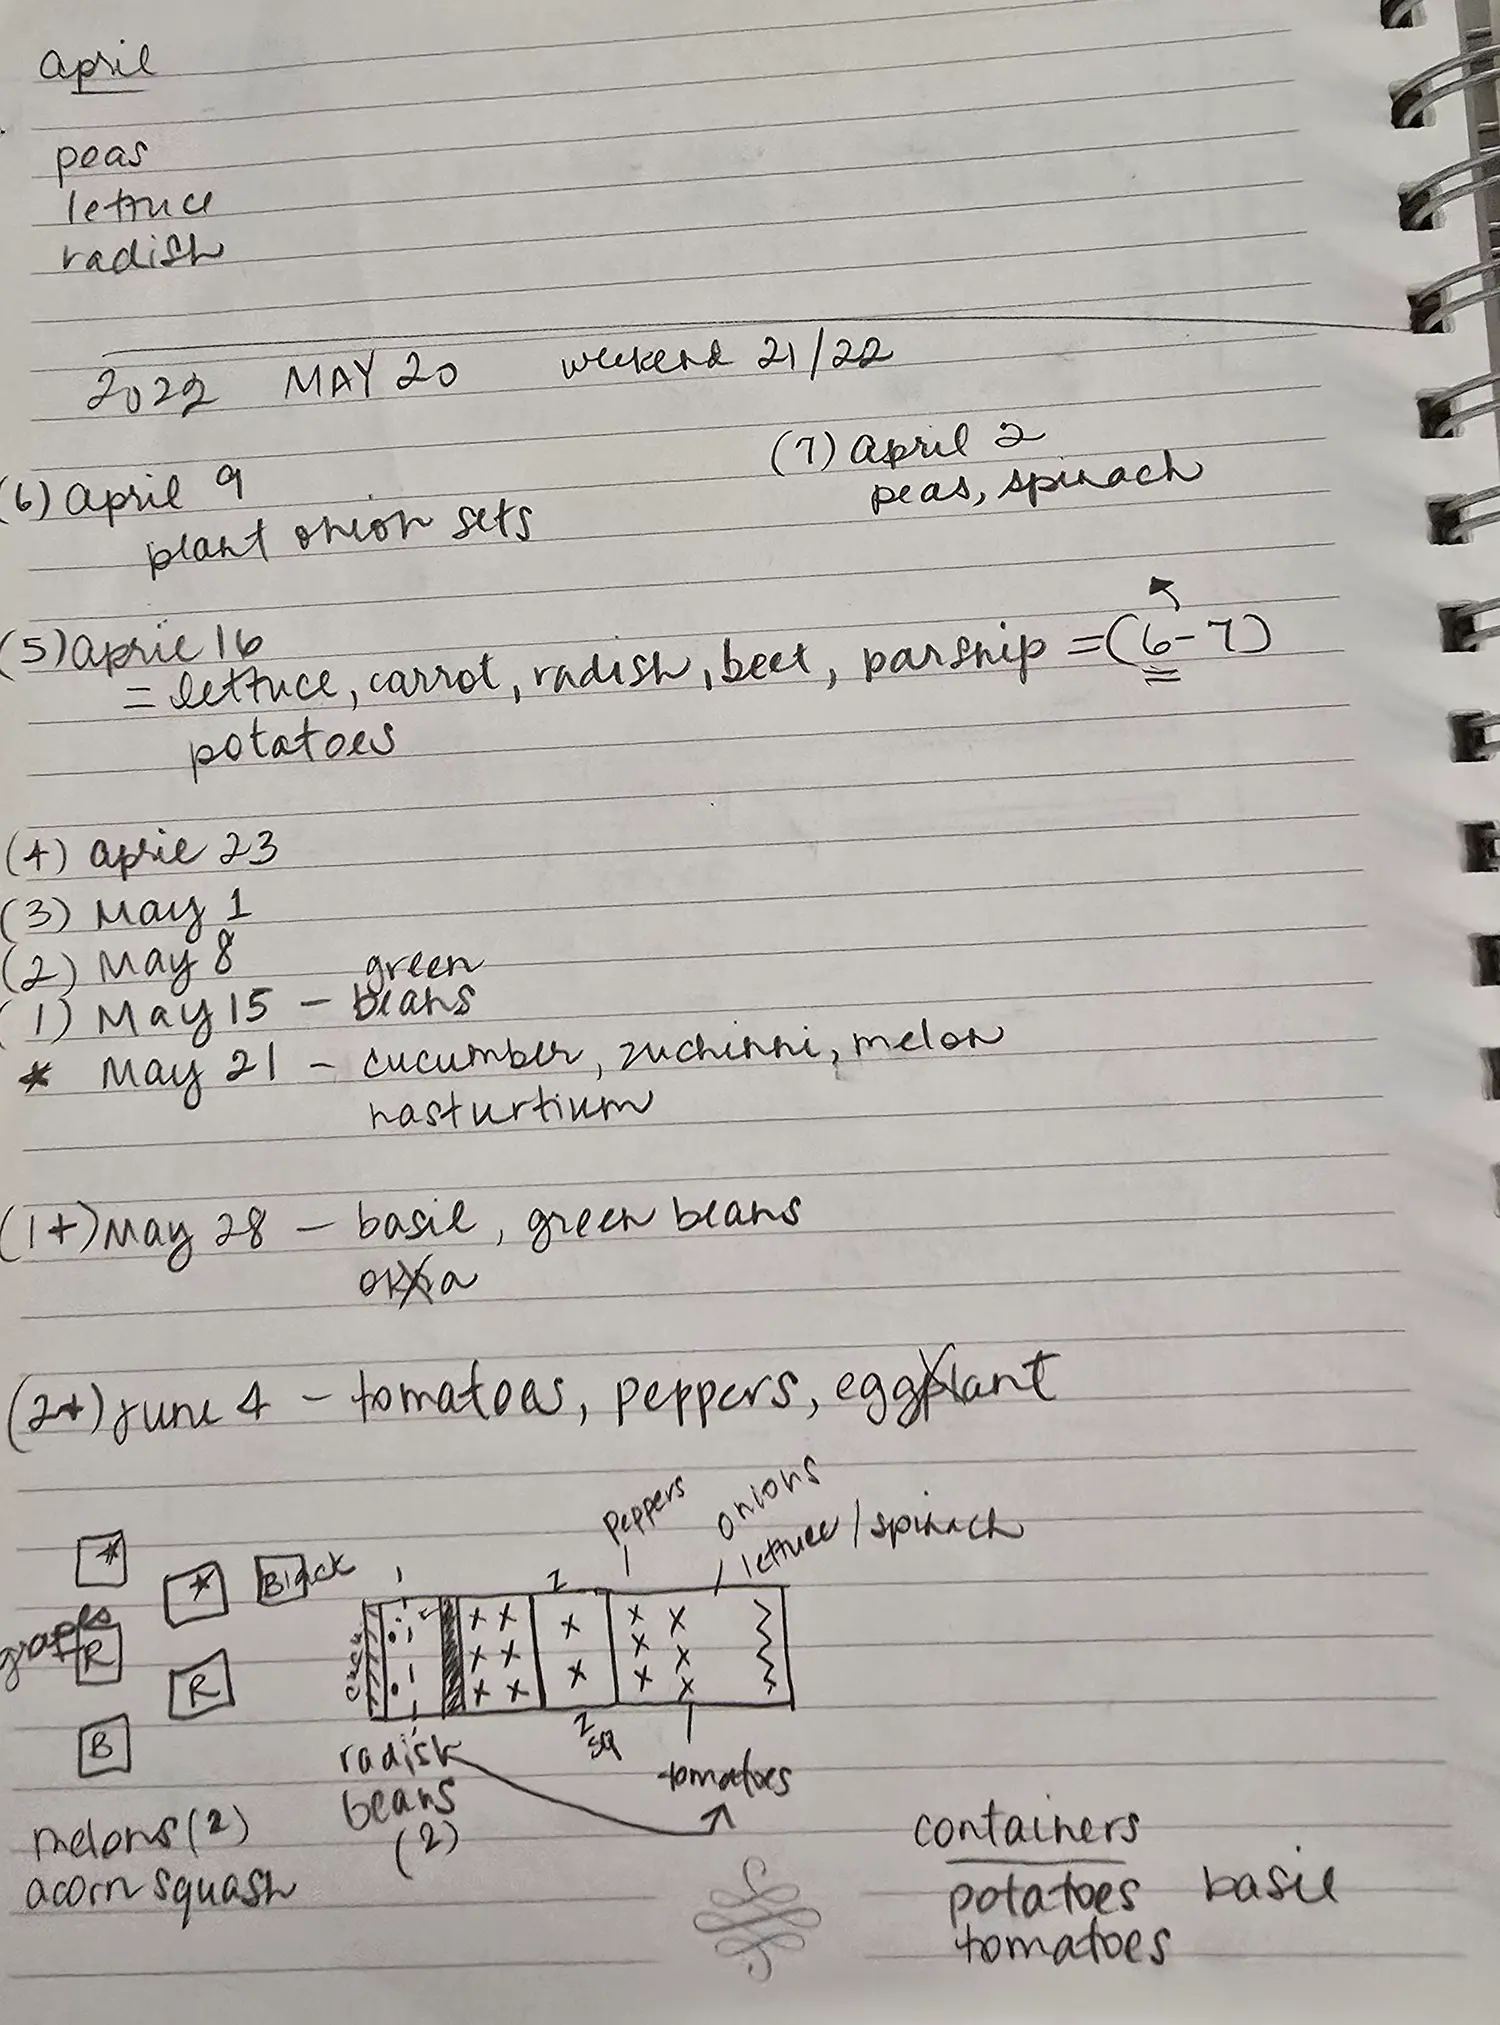 April
peas
lettuce
radish
2022 MAY 20 weekend 21/22
(7) April 2
peas, spinach
(6) April 9
plant onion sets
(5) April 16
= lettuce, carrot, radish, beet, parsnip = (6-7)
potatoes
(4) April 23
(3) May 1
(2) May 8
green
(1) May 15 - beans
* May 21 - cucumber, zuchinni, melon
nasturtium
(1+) May 28 - basil, green beans
okra
(2+) June 4 - tomatoes, peppers, eggplant
peppers
onions
lettuce/spinach
* * Black
grapes
R R
B
z
z
sq
radish
beans
(2)
tomatoes
melons (2)
acorn squash
containers
potatoes basil
tomatoes